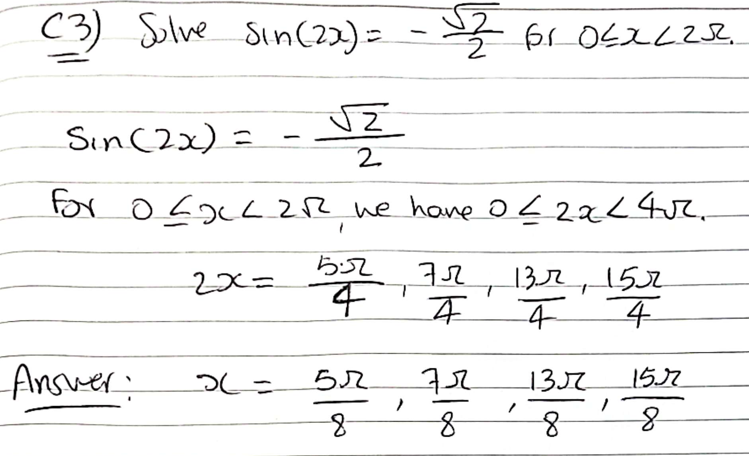 C3) Solve sin(2x) = -√2/2 for 0≤x<2π.
Sin(2x) = -√2/2
For 0≤x<2π, we have 0≤2x<4π.
2x = 5π/4, 7π/4, 13π/4, 15π/4
Answer: x = 5π/8, 7π/8, 13π/8, 15π/8